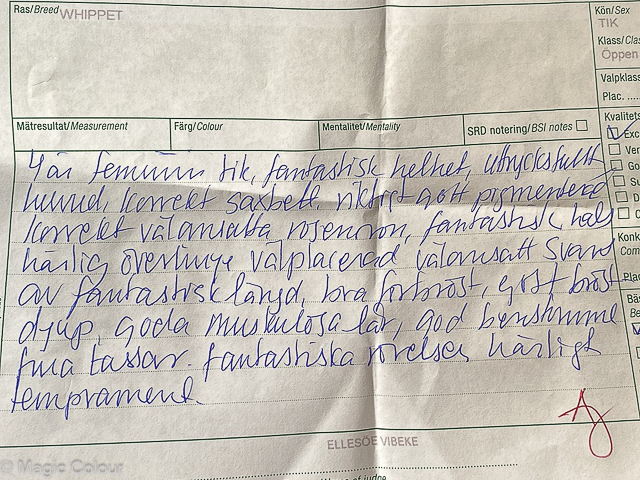 Ras/Breed WHIPPET
Kön/Sex
TIK
Klass/Clas
Öppen
Valpklass
Plac. ....
Mätresultat/Measurement Färg/Colour Mentalitet/Mentality SRD notering/BSI notes
Kvalitets
Exc
Ver
Go
Su
D
Konk
Com
Plac
Bäs
Be
4 år feminin tik, fantastisk helhet, uttrycksfullt
huvud, korrekt saxbett, riktigt gott pigmenterad
korrekt välansatta rosenöron, fantastisk hals
härlig överlinje välplacerad välansatt svans
av fantastisk längd, bra förbröst, gott bröst
djup, goda muskulösa lår, god benstomme
fina tassar. fantastiska rörelser härligt
temprament.
ELLESÖE VIBEKE
© Magic Colour
of judge